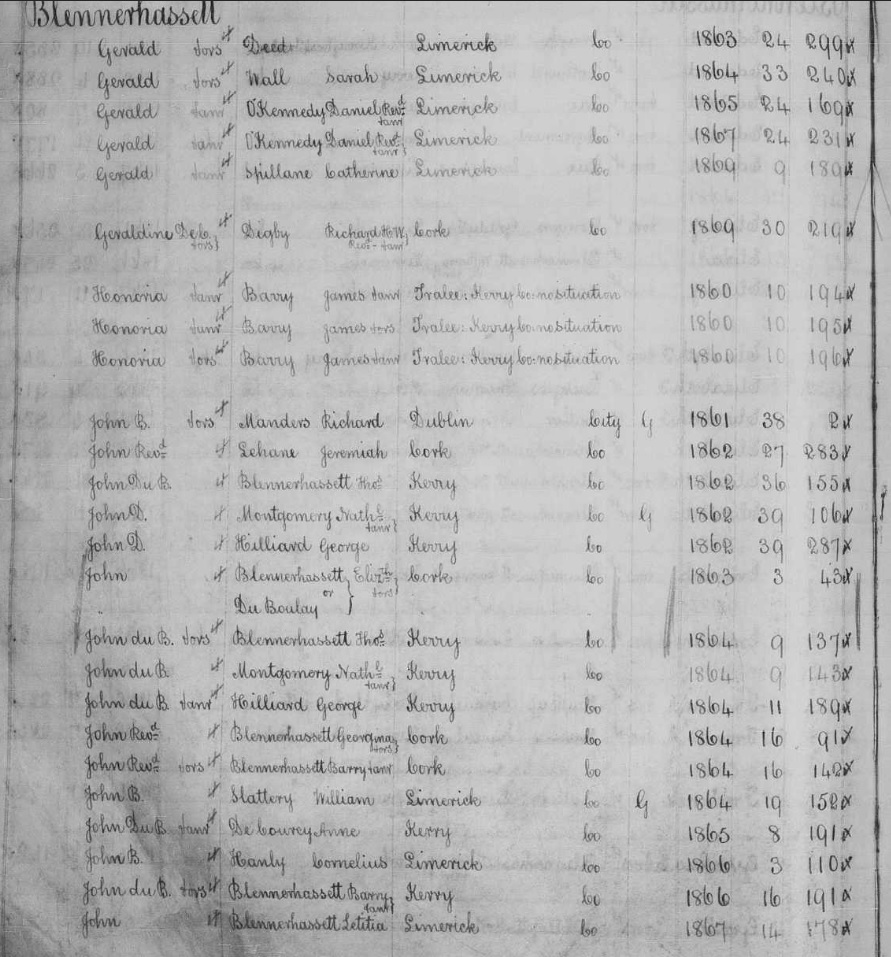 Blennerhassett
Gerald tors Deed Limerick Co 1863 24 299
Gerald tors Wall Sarah Limerick Co 1864 33 240
Gerald tanr O'Kennedy Daniel Revd tanr Limerick Co 1865 24 169
Gerald tanr O'Kennedy Daniel Revd tanr Limerick Co 1867 24 231
Gerald tanr Spillane Catherine Limerick Co 1869 9 180
Geraldine Deb. tors Digby Richard H.W. Revd tanr Cork Co 1869 30 219
Honoria tanr Barry James tanr Tralee: Kerry Co. no situation 1860 10 194
Honoria tanr Barry James tors Tralee: Kerry Co. no situation 1860 10 195
Honoria tors Barry James tanr Tralee: Kerry Co. no situation 1860 10 196
John B. tors Manders Richard Dublin City G 1861 38 2
John Revd Lehane Jeremiah Cork Co 1862 27 283
John Du B. Blennerhassett Thos Kerry Co 1862 36 155
John D. Montgomery Nathl tanr Kerry Co G 1862 39 106
John D. Hilliard George Kerry Co 1862 39 287
John Blennerhassett, Elizth tors Cork Co 1863 3 43
or
Du Boulay
John du B. tors Blennerhassett Thos Kerry Co 1864 9 137
John du B. Montgomery Nathl tanr Kerry Co 1864 9 143
John du B tanr Hilliard George Kerry Co 1864 11 189
John Revd Blennerhassett Georgina tors Cork Co 1864 16 91
John Revd tors Blennerhassett Barry tanr Cork Co 1864 16 142
John B. Slattery William Limerick Co G 1864 19 152
John Du B. tanr De Courcy Anne Kerry Co 1865 8 191
John B. Hanly Cornelius Limerick Co 1866 3 110
John du B. tors Blennerhassett Barry tanr Kerry Co 1866 16 191
John Blennerhassett Letitia Limerick Co 1867 14 178